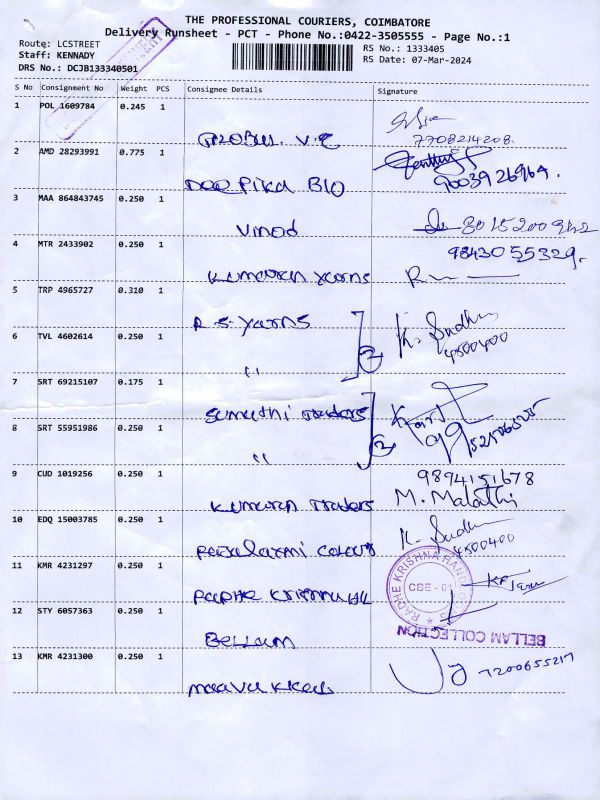 THE PROFESSIONAL COURIERS, COIMBATORE
Delivery Runsheet - PCT - Phone No.:0422-3505555 - Page No.:1
Route: LCSTREET
RS No.: 1333405
Staff: KENNADY
RS Date: 07-Mar-2024
DRS No.: DCJB133340501
S No Consignment No Weight PCS Consignee Details Signature
1 POL 1609784 0.245 1
7708214208.
2 AMD 28293991 0.775 1
Deepika BIO 9003926969.
3 MAA 864843745 0.250 1
Vinod
4 MTR 2433902 0.250 1 9843055329.
Kumaran yarns
5 TRP 4965727 0.310 1
R.S. yarns
6 TVL 4602614 0.250 1 K. Sudha
" 2 4500400
7 SRT 69215107 0.175 1
Sumathi Traders
8 SRT 55951986 0.250 1
" 2
9 CUD 1019256 0.250 1 9894151678
Kumaran Traders M. Malathi
10 EDQ 15003785 0.250 1 K. Sudha
4500400
11 KMR 4231297 0.250 1
RADHE KRISHNA HAND
CBE - 01
12 STY 6057363 0.250 1
BELLAM COLLECTION
Bellam
13 KMR 4231300 0.250 1
7200655217